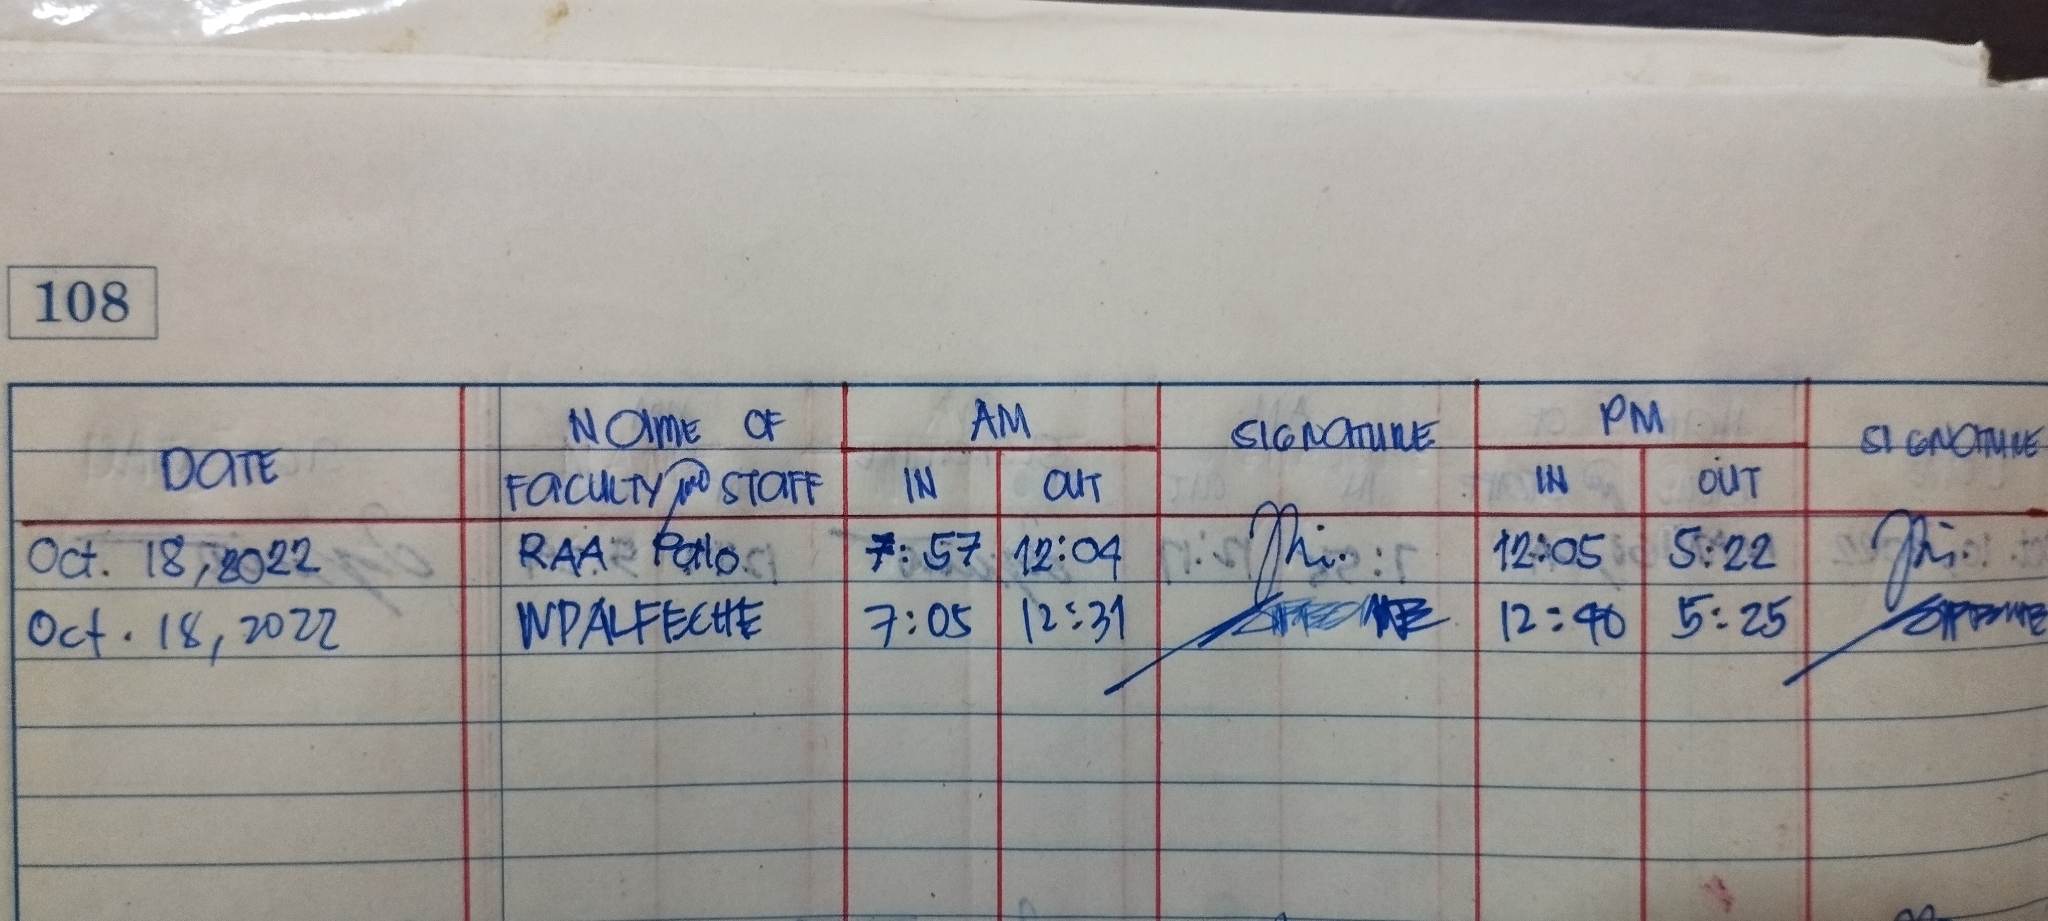 108
DATE NAME OF FACULTY and STAFF AM IN OUT SIGNATURE PM IN OUT SIGNATURE
Oct. 18, 2022 RAA Polo 7:57 12:04 12:05 5:22
Oct. 18, 2022 WPALFECHE 7:05 12:31 12:40 5:25